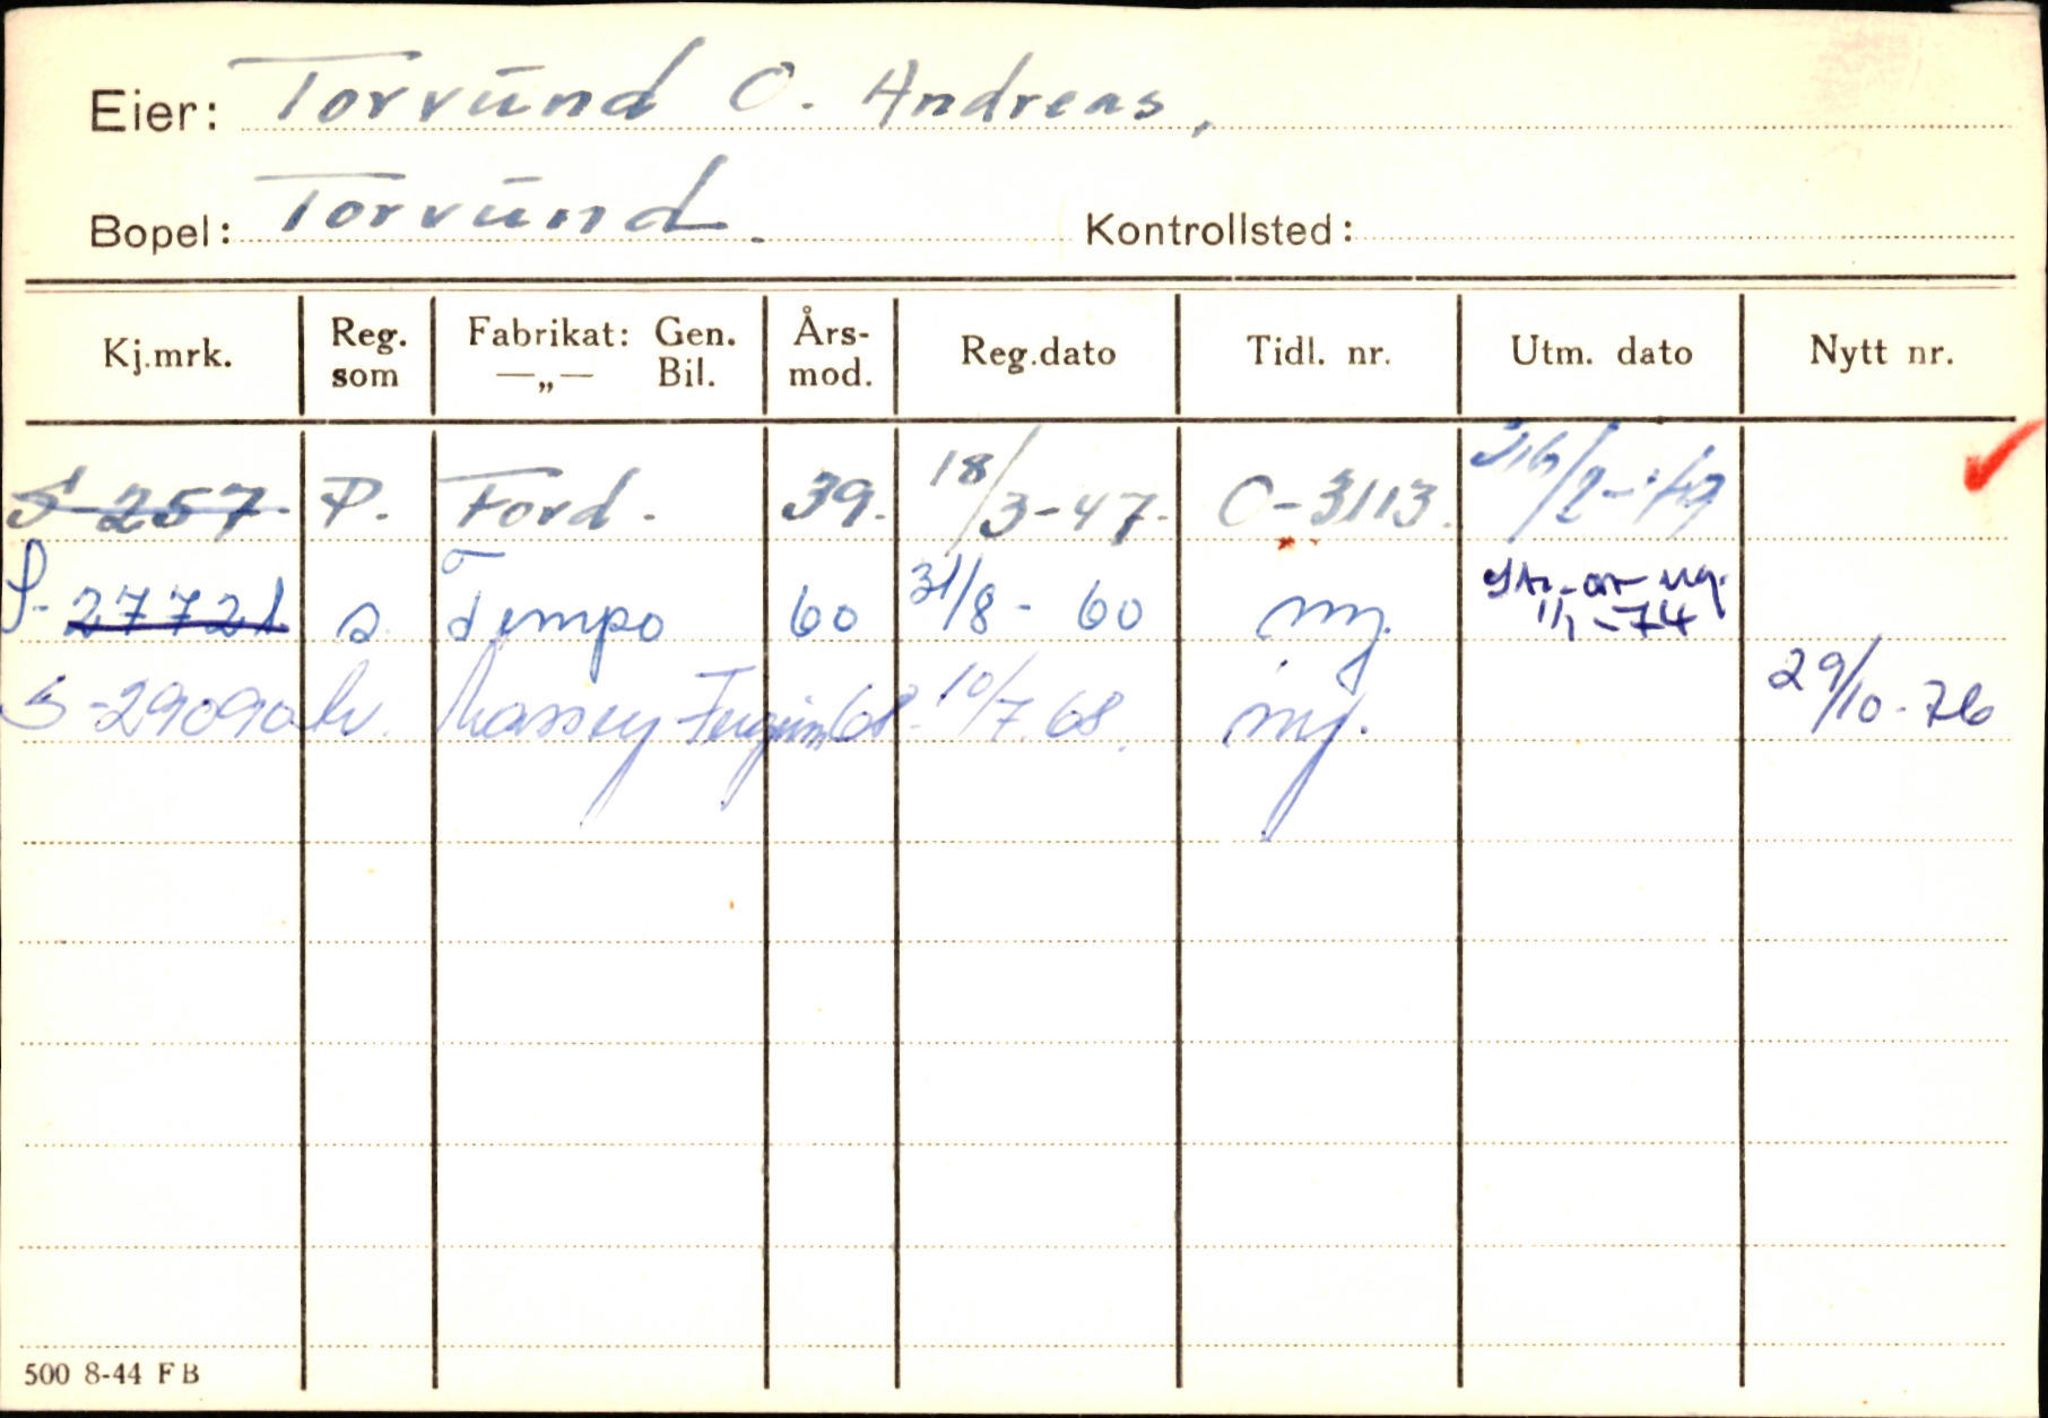 Eier: Torvund O. Andreas,
Bopel: Torvund. Kontrollsted:
Kj.mrk. Reg. som Fabrikat: Gen. —„— Bil. Års- mod. Reg.dato Tidl. nr. Utm. dato Nytt nr.
S-257. P. Ford. 39. 18/3-47. C-3113.
S-27721 s. Tempo 60 31/8-60 ny. 1/1-74
S-29090 Massey Ferguson 68. 10/7.68. ny. 29/10-76
500 8-44 FB